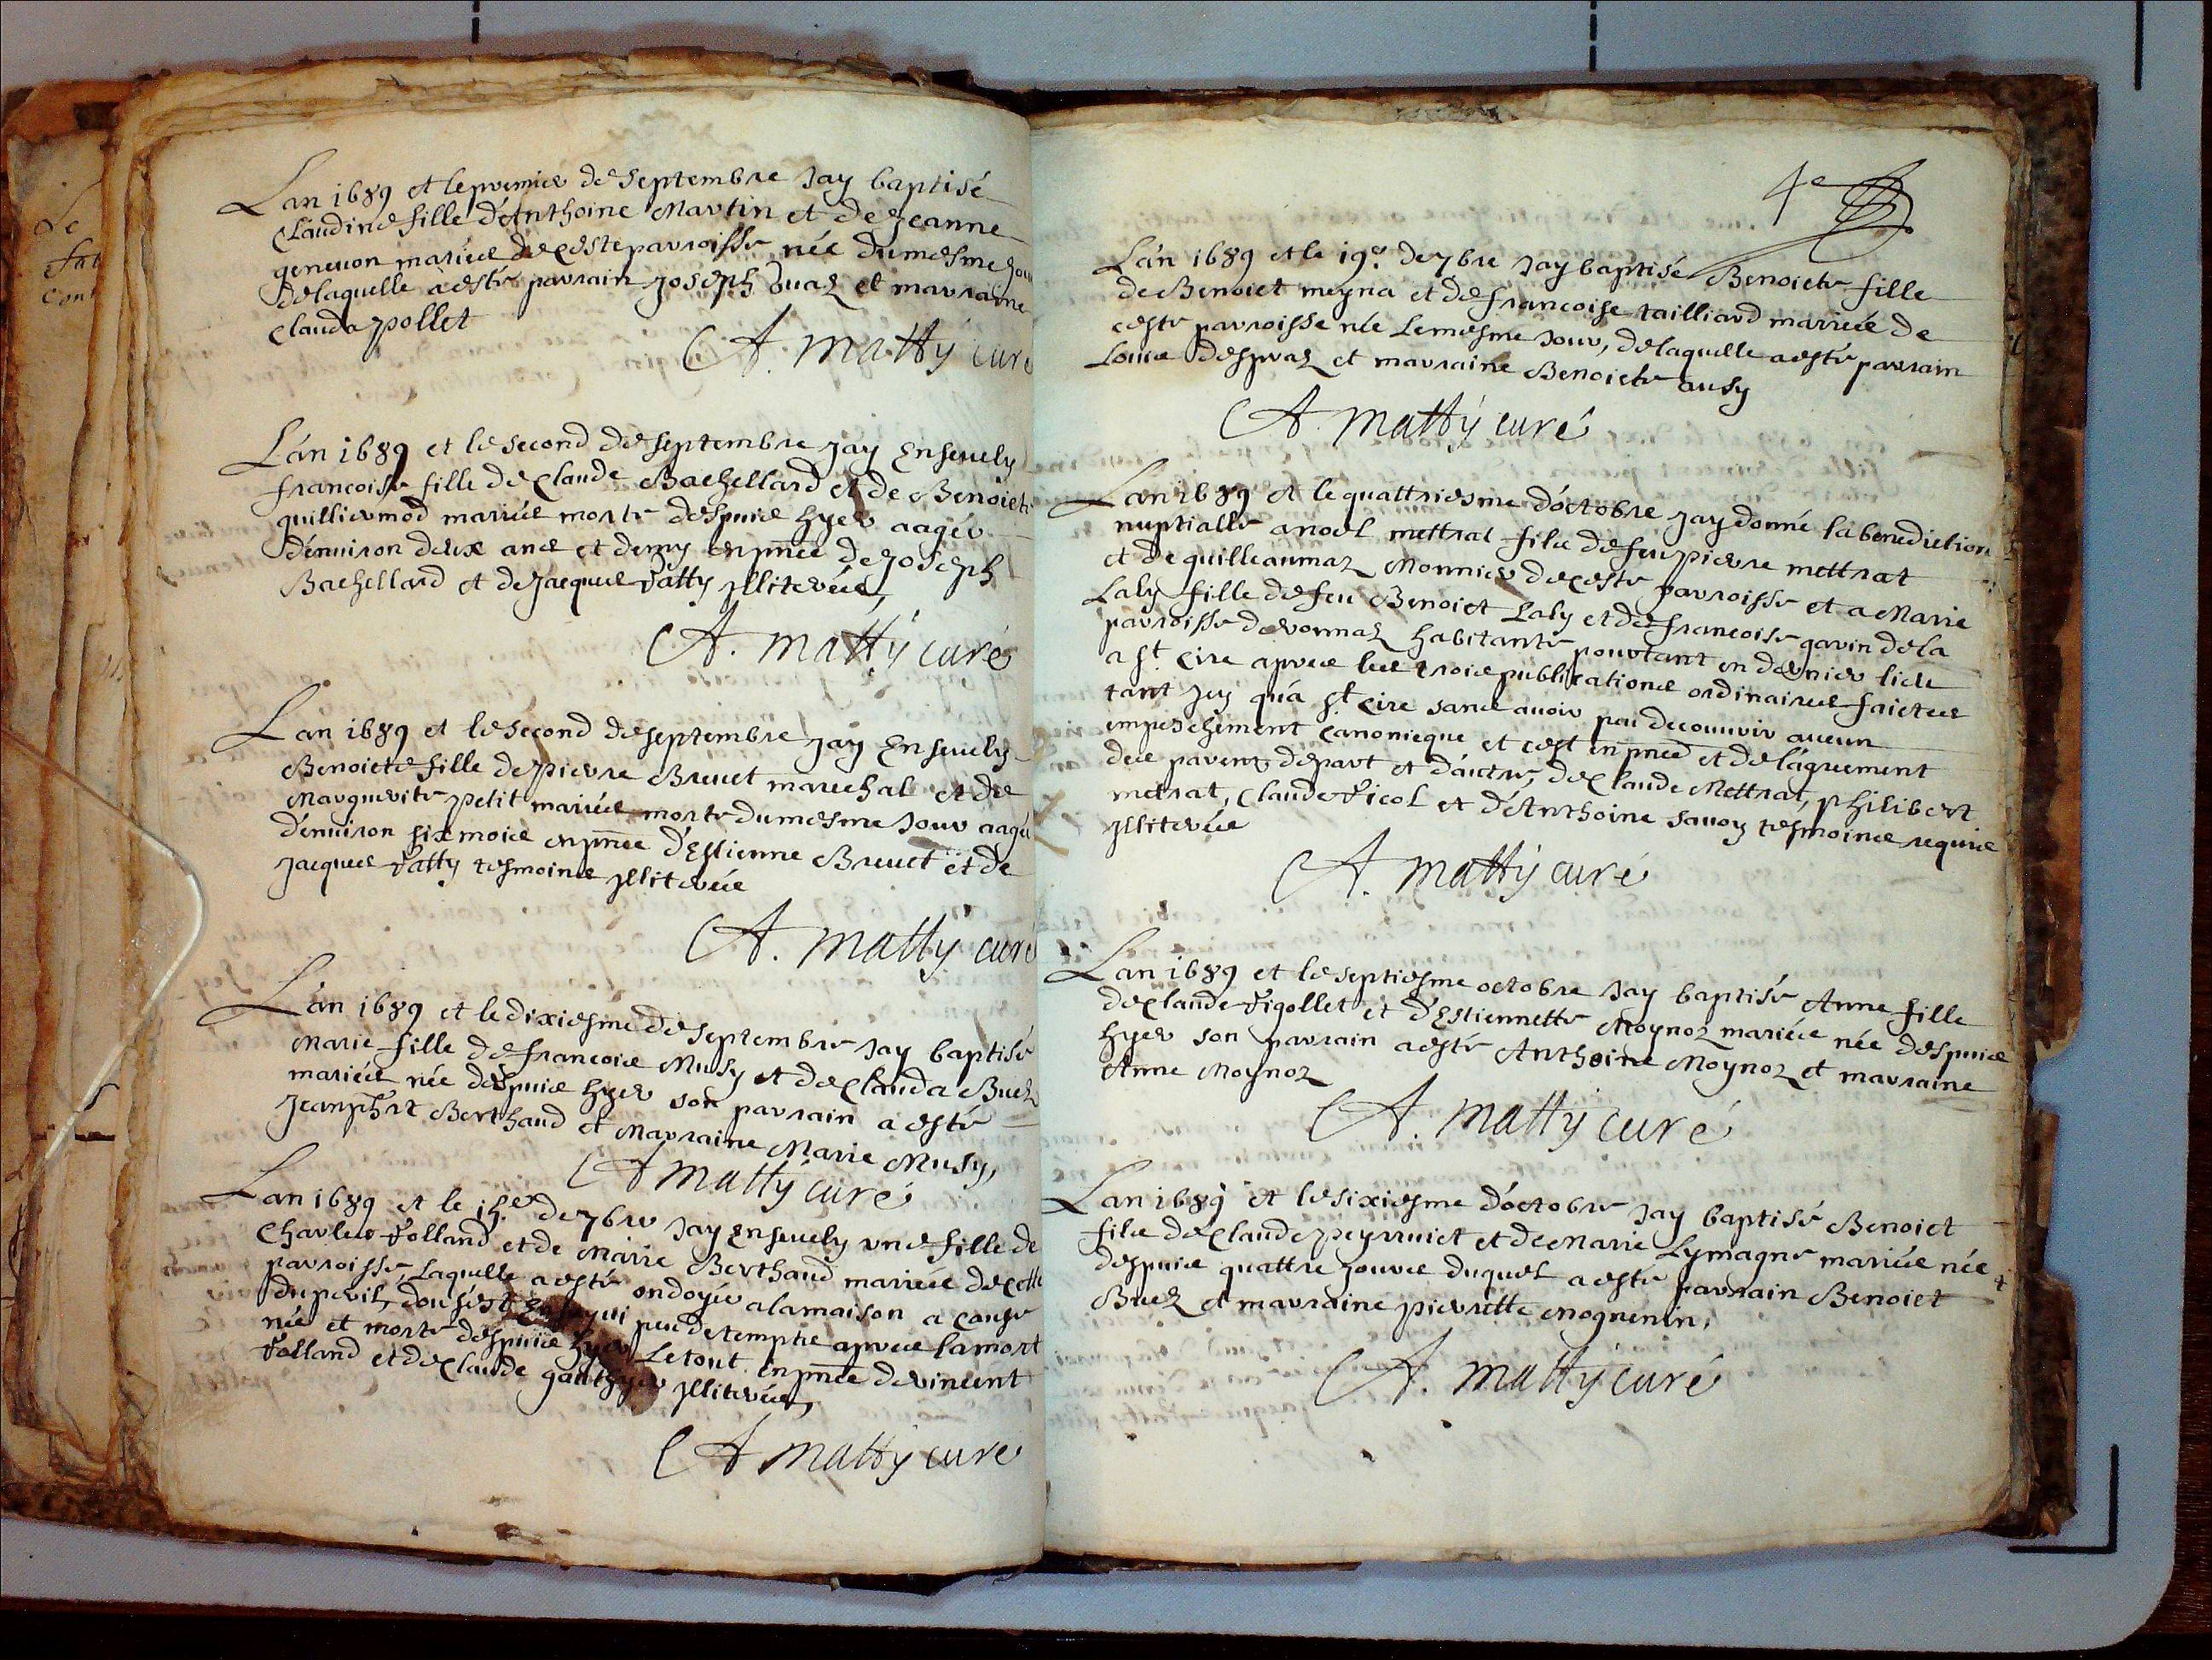 Lan 1689 et le premier de Septembre Jay baptisé
Claudine fille d'Anthoine Martin et de Jeanne
geneuon mariés de ceste parroisse née du mesme Jour
de laquelle a esté parrain Joseph Duaz et marraine
Clauda pollet
A. Matty curé
L'an 1689 et le second de septembre Jay Enseuely
francoise fille de Claude Bachellard et de Benoicte
guilliermod mariés morte despuis hyer aagée
d'enuiron deux ans et demy en pnce de Joseph
Bachellard et de Jacques Vatty Jlliterés,
A. Matty curé
Lan 1689 et le second de septembre Jay Enseuely
Benoicte fille de pierre Breuet marechal et de
Marguerite petit mariés morte du mesme Jour aagée
d'enuiron six mois en pnce d'Estienne Breuet et de
Jacques Vatty tesmoins Jlliterés
A. Matty curé
L'an 1689 et le dixiesme de Septembre Jay baptisé
Marie fille de francois Musy et de Clauda Buez
mariés née despuis hyer son parrain a esté
Jean phrt Berthaud et Marraine Marie Musy,
A Matty curé
Lan 1689 et le de 7bre Jay Enseuely une fille de
Charles Volland et de Marie Berthaud mariés de cette
parroisse, Laquelle a esté ondoyée a la maison a cause
du peril, peu de temps apres la mort
née et morte despuis hyer Le tout en pnce de vincent
Volland et de Claude gauthyer Jlliterés,
A Matty curé
4e
L'an 1689 et le 19e de 7bre Jay baptisé Benoicte fille
de Benoict meyna et de francoise tailliard mariés de
ceste parroisse née Le mesme Jour, de laquelle a esté parrain
Louis despraz et marraine Benoicte ausy
A. Matty curé
Lan 1689 et le quattriesme d'octobre Jay donné la benediction
nuptialle a noel mettrat fils de feu pierre mettrat
et de guilleaumaz Monnier de ceste parroisse et a Marie
Laly fille de feu Benoict Laly et de francoise gavin de la
parroisse de vonnaz habitante pourtant en dernier lieu
a St Cire apres les trois publications ordinaires faictes
tant Jcy qu'a St Cire sans auoir peu decouurir aucun
empeschement canonicque et cest en pnce et de l'agreement
des parens depart et d'autre, de Claude Mettrat, philibert
metrat, Claude Vicol et d'Anthoine Sauoy tesmoins requis
Jlliterés
A. Matty curé
Lan 1689 et le septiesme octobre Jay baptisé Anne fille
de Claude Vigollet et d'Estiennette Moynoz mariés née despuis
hyer son parrain a esté Anthoine Moynoz et marraine
Anne Moynoz
A. Matty curé
Lan 1689 et le sixiesme d'octobre Jay baptisé Benoict
fils de Claude peyruict et de Marie Lymagne mariés née
despuis quattre Jours duquel a esté parrain Benoict
Buez et marraine pierrette mognenin,
A. Matty curé